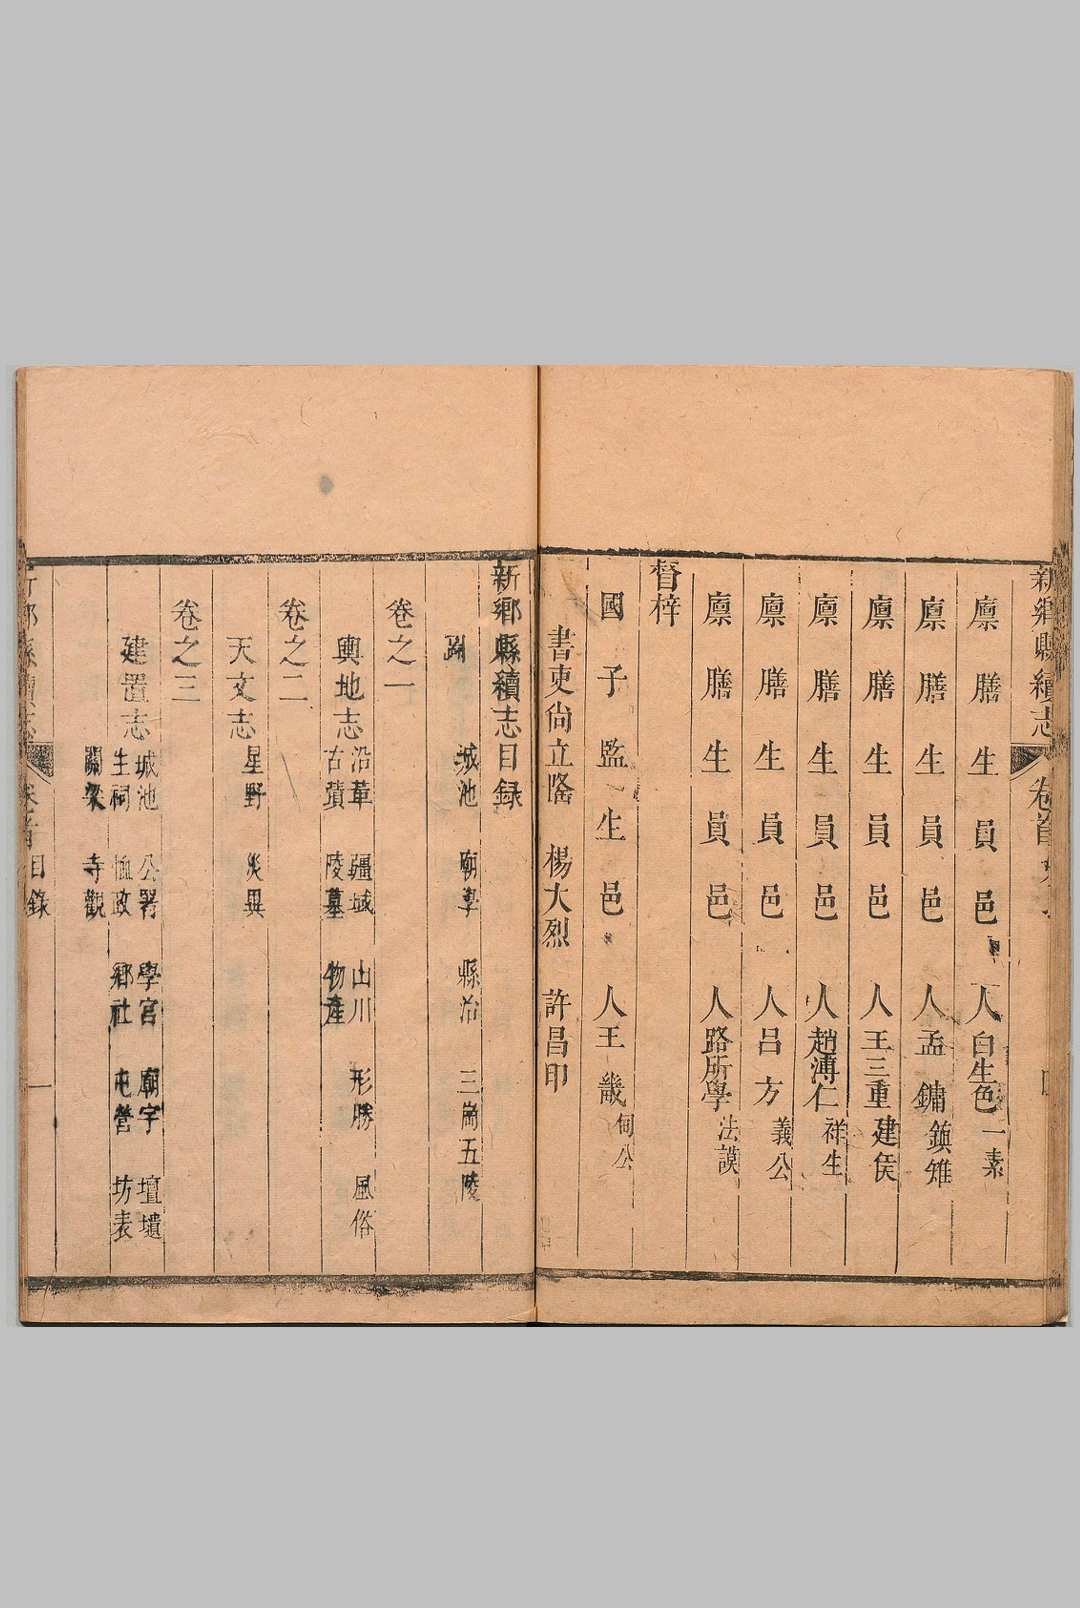 新鄉縣續志
卷首
廪膳生員邑人白生色一素
廪膳生員邑人孟鏞鎮雉
廪膳生員邑人王三重建侯
廪膳生員邑人趙溥仁祥生
廪膳生員邑人呂方義公
廪膳生員邑人路所學法謨
督梓
國子監生邑人王畿甸公
書吏尙立隆 楊大烈 許昌印
新鄉縣續志目錄
圖
城池 廟學 縣治 三崗五陵
卷之一
輿地志
沿革 疆域 山川 形勝 風俗
古蹟 陵墓 物產
卷之二
天文志
星野 災異
卷之三
建置志
城池 公署 學宮 廟宇 壇壝
生祠 恤政 鄉社 屯營 坊表
關梁 寺觀
新鄉縣續志
卷之首
目錄
一